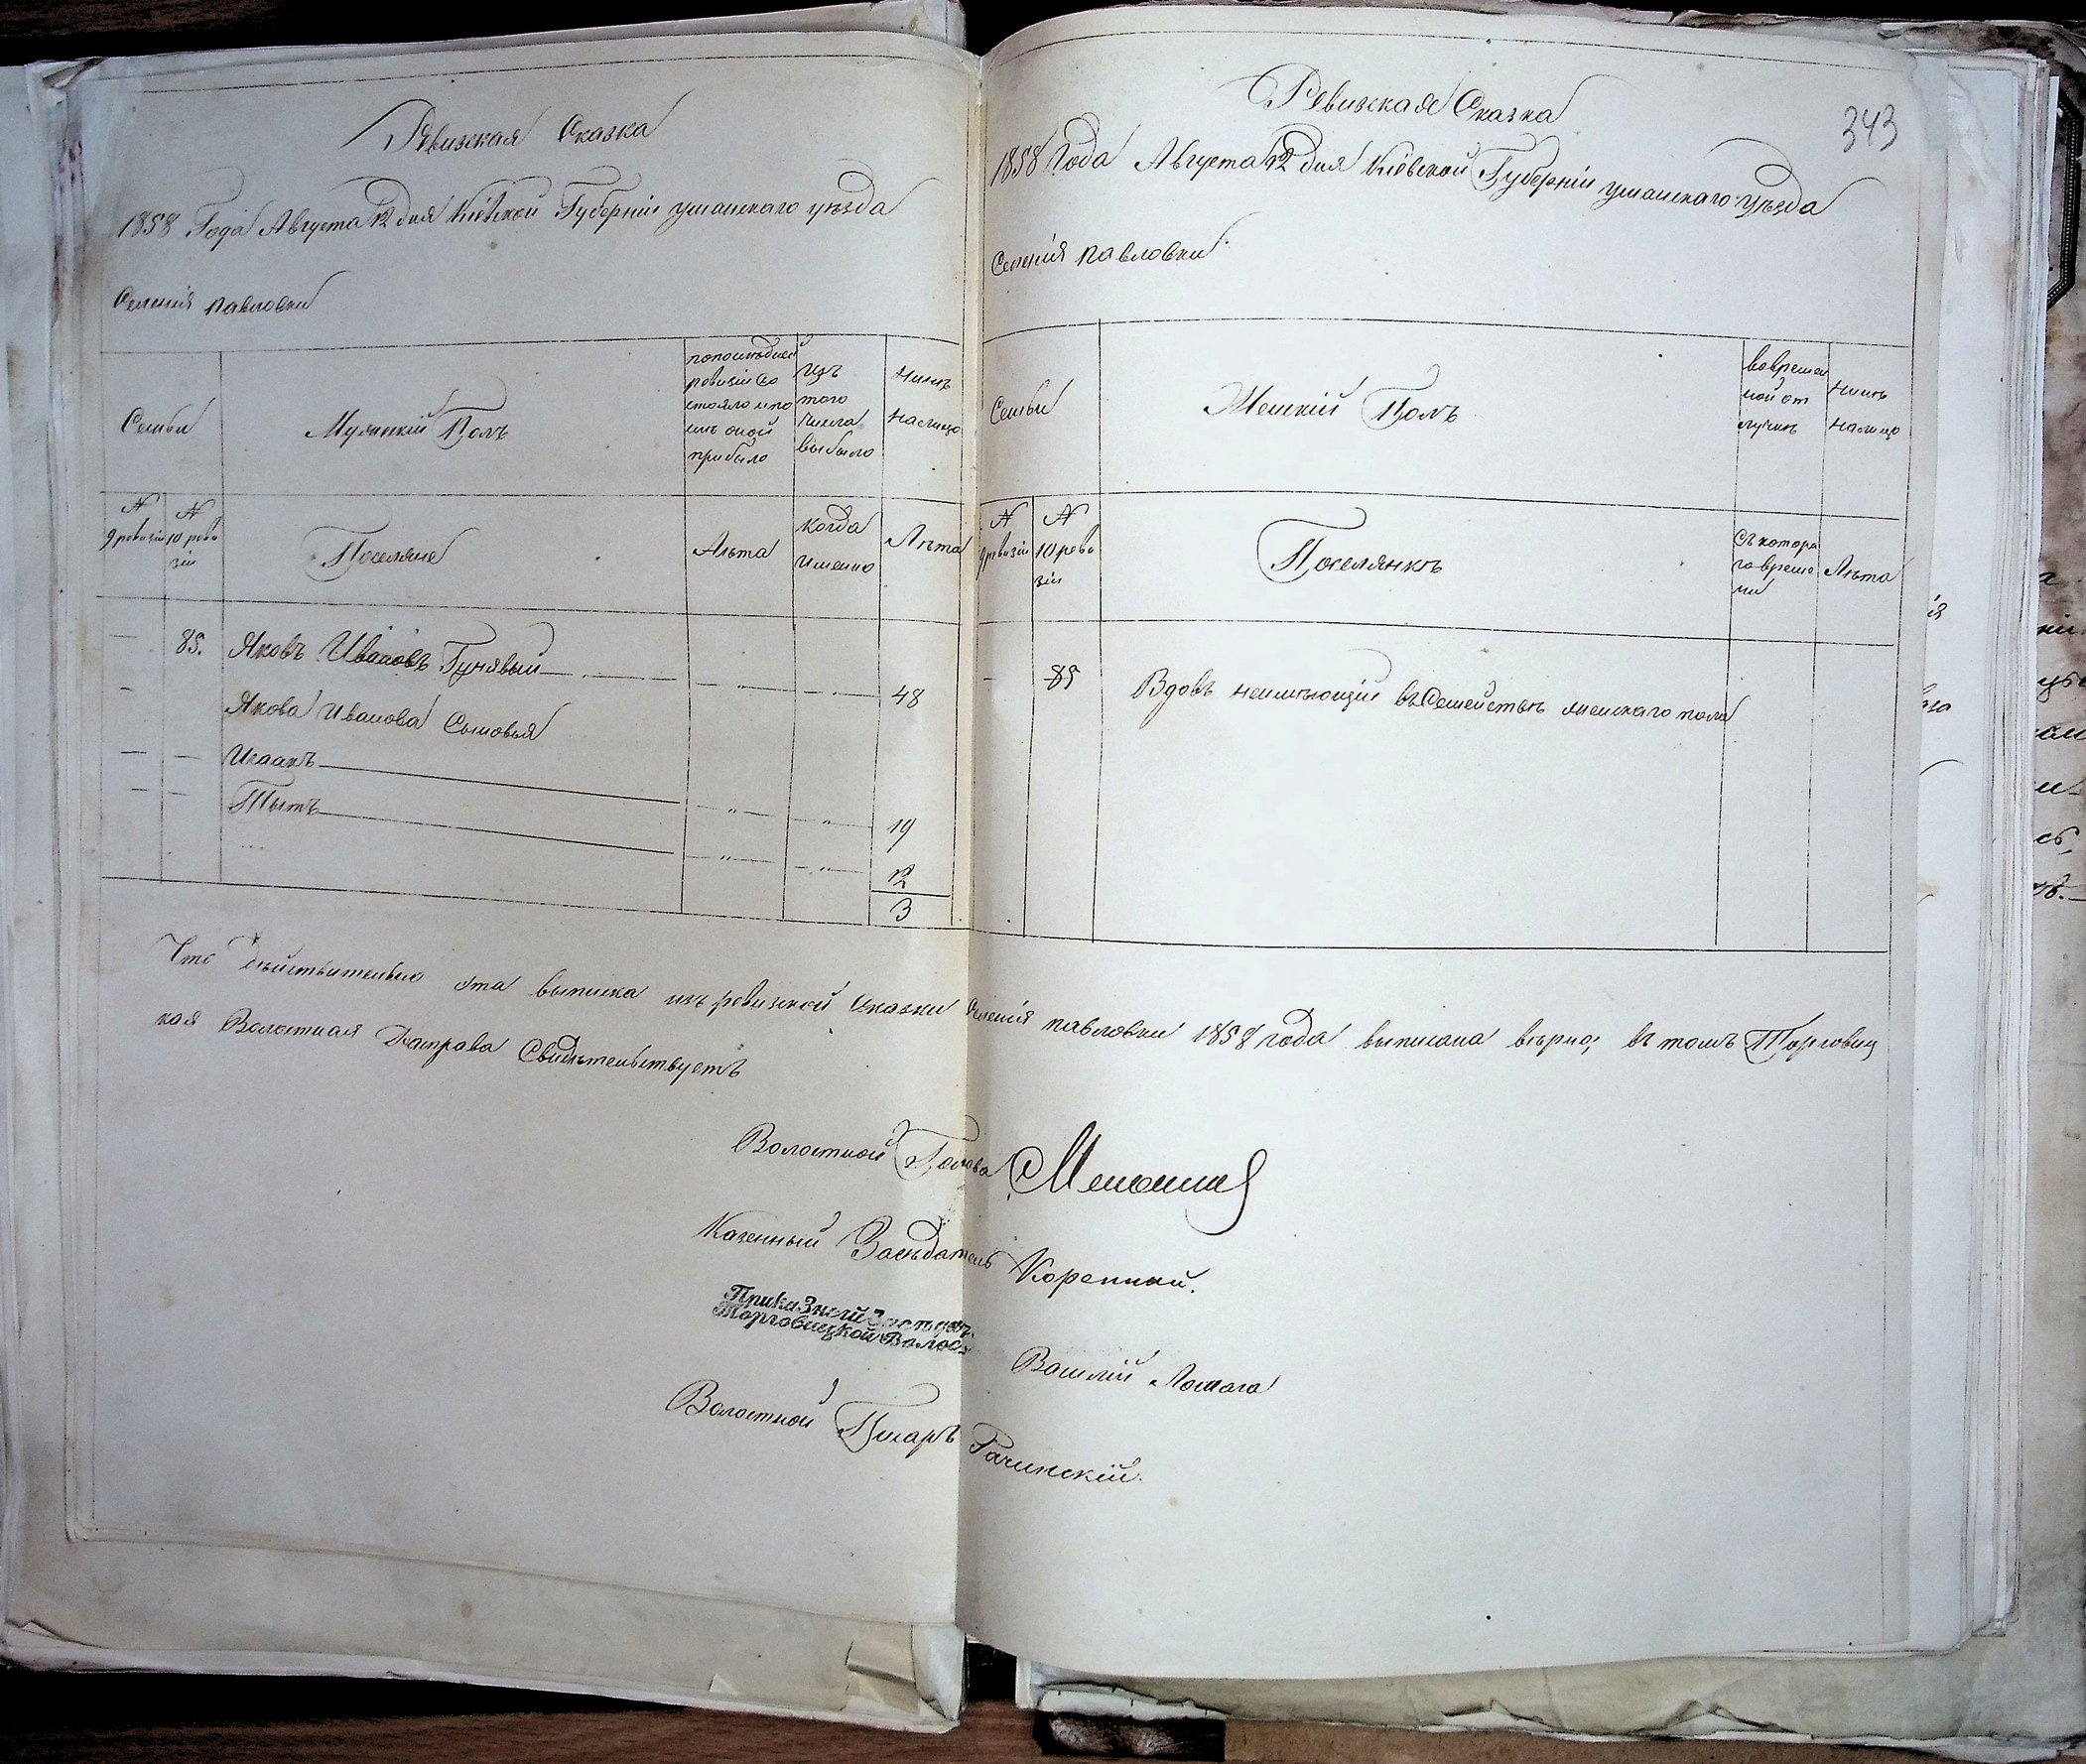 Ревизская Сказка
1858 Года Августа 12 дня Кіевской Губерніи уманскаго уѣзда
Селенія павловки
Семьи
Мужескій Полъ
попослѣдней
ревизіи со
стояло и по
слѣ оной
прибыло
изъ
того
числа
выбыло
Нынѣ
налицо
N
9 ревизіи
N
10 реви
зіи
Поселяне
Лѣта
когда
именно
Лѣта
— 85. Яковъ Ивановъ Гунявый — " — " — 48
Якова Иванова Сыновья
— — Исаакъ — " — " — 19
— — Тытъ — " — " — 12
3
343
Ревизская Сказка
1858 Года Августа 12 дня Кіевской Губерніи уманскаго уѣзда
Селенія павловки
Семьи
Женскій Полъ
вовремен
ной от
лучкѣ
Нынѣ
налицо
N
9 ревизіи
N
10 реви
зіи
Поселянкѣ
Съ котора
го време
ни
Лѣта
— 85 Вдовъ неимѣющій въ Семействѣ женскаго пола
Что дѣйствительно эта выписка изъ ревизской Сказки Селенія павловки 1858 года выписана вѣрно; въ томъ Торговиц
кая Волостная Росправа Свидѣтельствуетъ
Волостной Голова
Казенный Засѣдатель Коренной.
Приказный
Торговицкой Волос
Василій
Волостной Писарь Рачинскій.